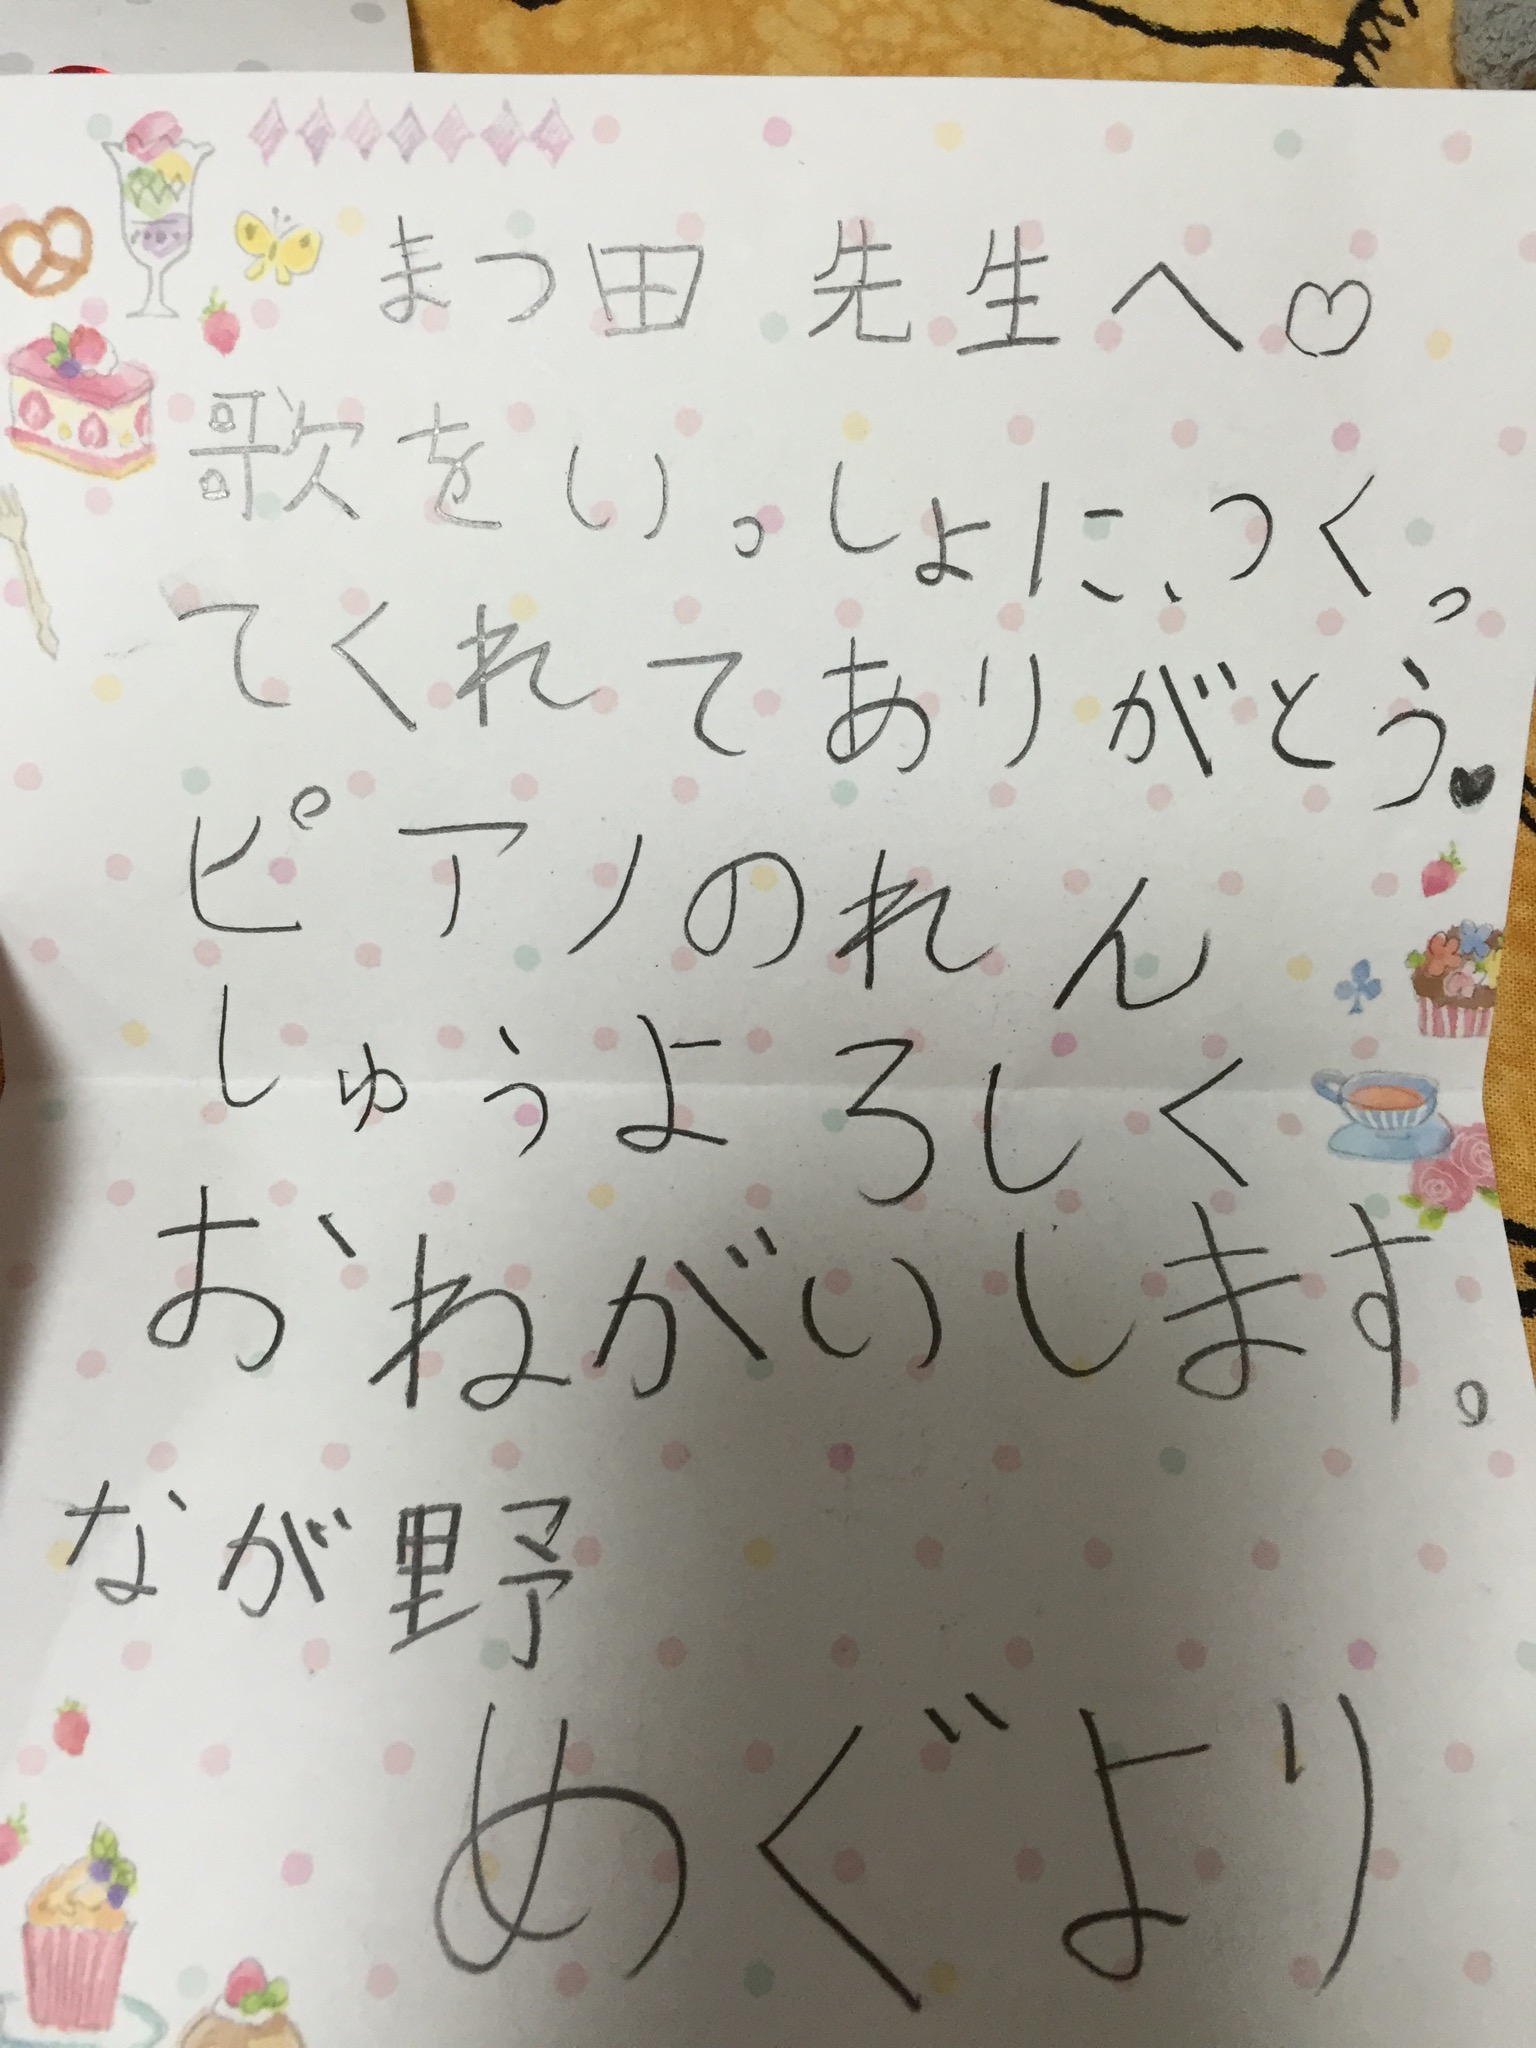 まつ田 先生へ♡
歌をいっしょに、つくっ
てくれてありがとう♥
ピアノのれん
しゅうよろしく
おねがいします。
なが野
めぐより